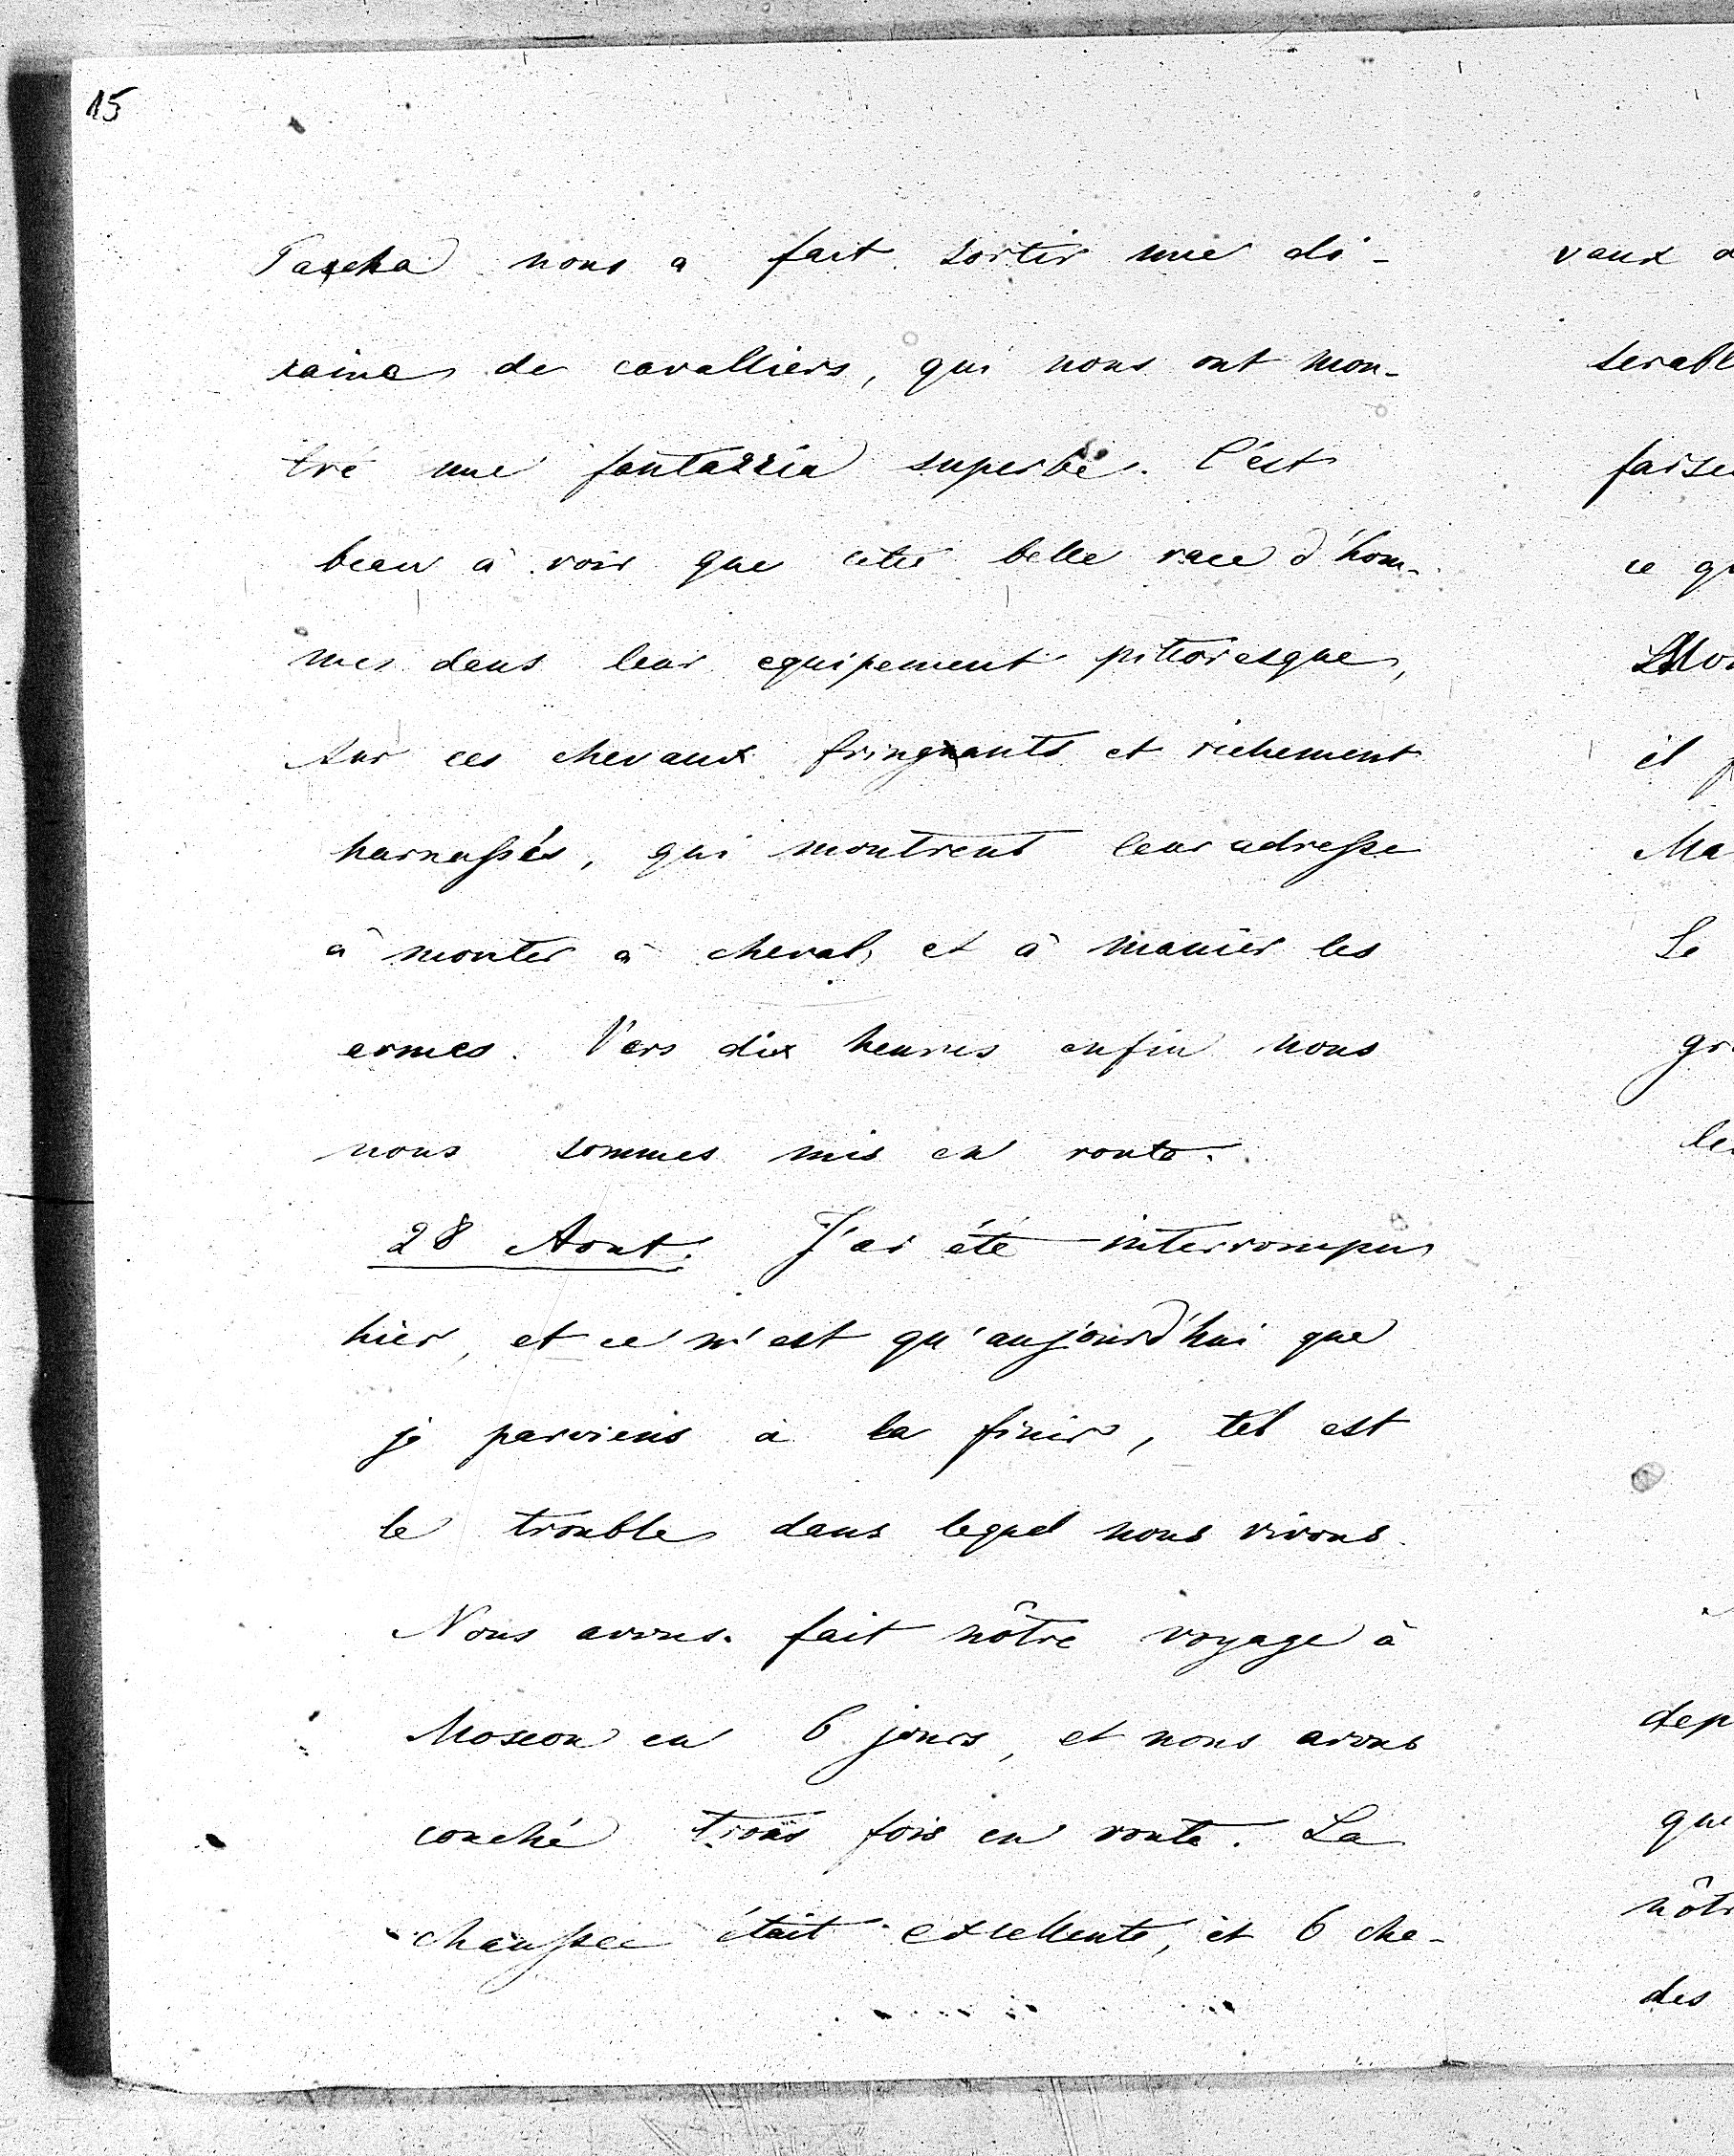 15
Pascha nous a fait sortir une di-
xaine de cavalliers, qui nous ont mon-
tré une fantazzia superbe. C'est
beau à voir que cette belle race d'hom-
mes dans leur equipement pittoresque,
sur ces chevaux fringants et richement
harnassés, qui montrent leur adresse
à monter à cheval, et à manier les
armes. Vers dix heures enfin nous
nous sommes mis en route.
28 Aout. J'ai été interrompu
hier, et ce n'est qu'aujourd'hui que
je parviens à la finir, tel est
le trouble dans lequel nous vivons.
Nous avons fait nôtre voyage à
Moscou en 6 jours, et nous avons
couché trois fois en route. La
chaussee était excellente, et 6 che-
vaux
serabl
faise
ce qu
il
Ma
Le
gr
dep
que
nôtr
des